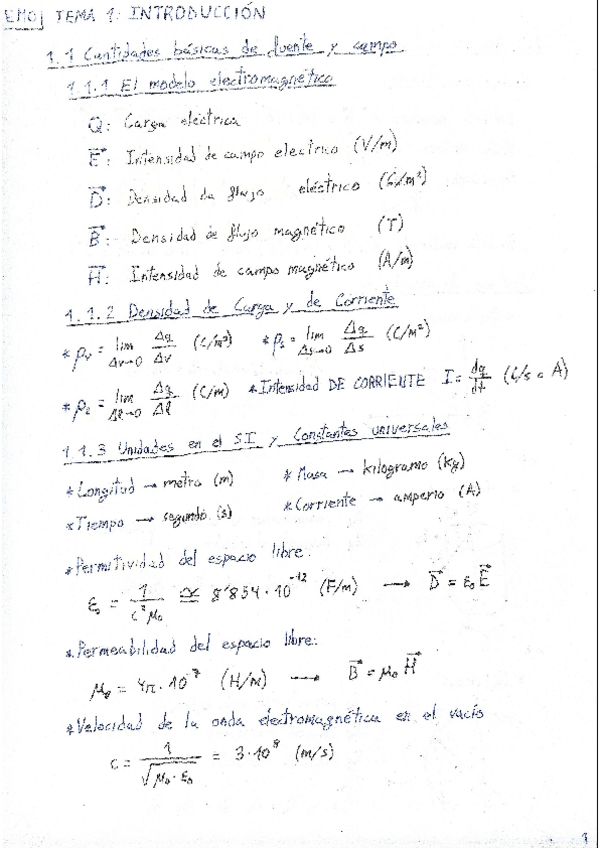 EMO| TEMA 1: INTRODUCCIÓN
1.1 Cantidades básicas de fuente y campo
1.1.1 El modelo electromagnético
Q: Carga eléctrica
E⃗: Intensidad de campo electrico (V/m)
D⃗: Densidad de flujo eléctrico (C/m²)
B⃗: Densidad de flujo magnético (T)
H⃗: Intensidad de campo magnético (A/m)
1.1.2 Densidad de Carga y de Corriente
* ρᵥ = lim Δv→0 Δq/Δv (C/m³) * ρₛ = lim Δs→0 Δq/Δs (C/m²)
* ρₗ = lim Δℓ→0 Δq/Δℓ (C/m) * Intensidad DE CORRIENTE I = dq/dt (C/s = A)
1.1.3 Unidades en el S.I y Constantes universales
* Longitud → metro (m) * Masa → kilogramo (Kg)
* Tiempo → segundo (s) * Corriente → amperio (A)
* Permitividad del espacio libre:
ε₀ = 1/(c²μ₀) ≅ 8'854·10⁻¹² (F/m) → D⃗ = ε₀E⃗
* Permeabilidad del espacio libre:
μ₀ = 4π·10⁻⁷ (H/m) → B⃗ = μ₀H⃗
* Velocidad de la onda electromagnética en el vacío
c = 1/√(μ₀·ε₀) = 3·10⁸ (m/s)
1